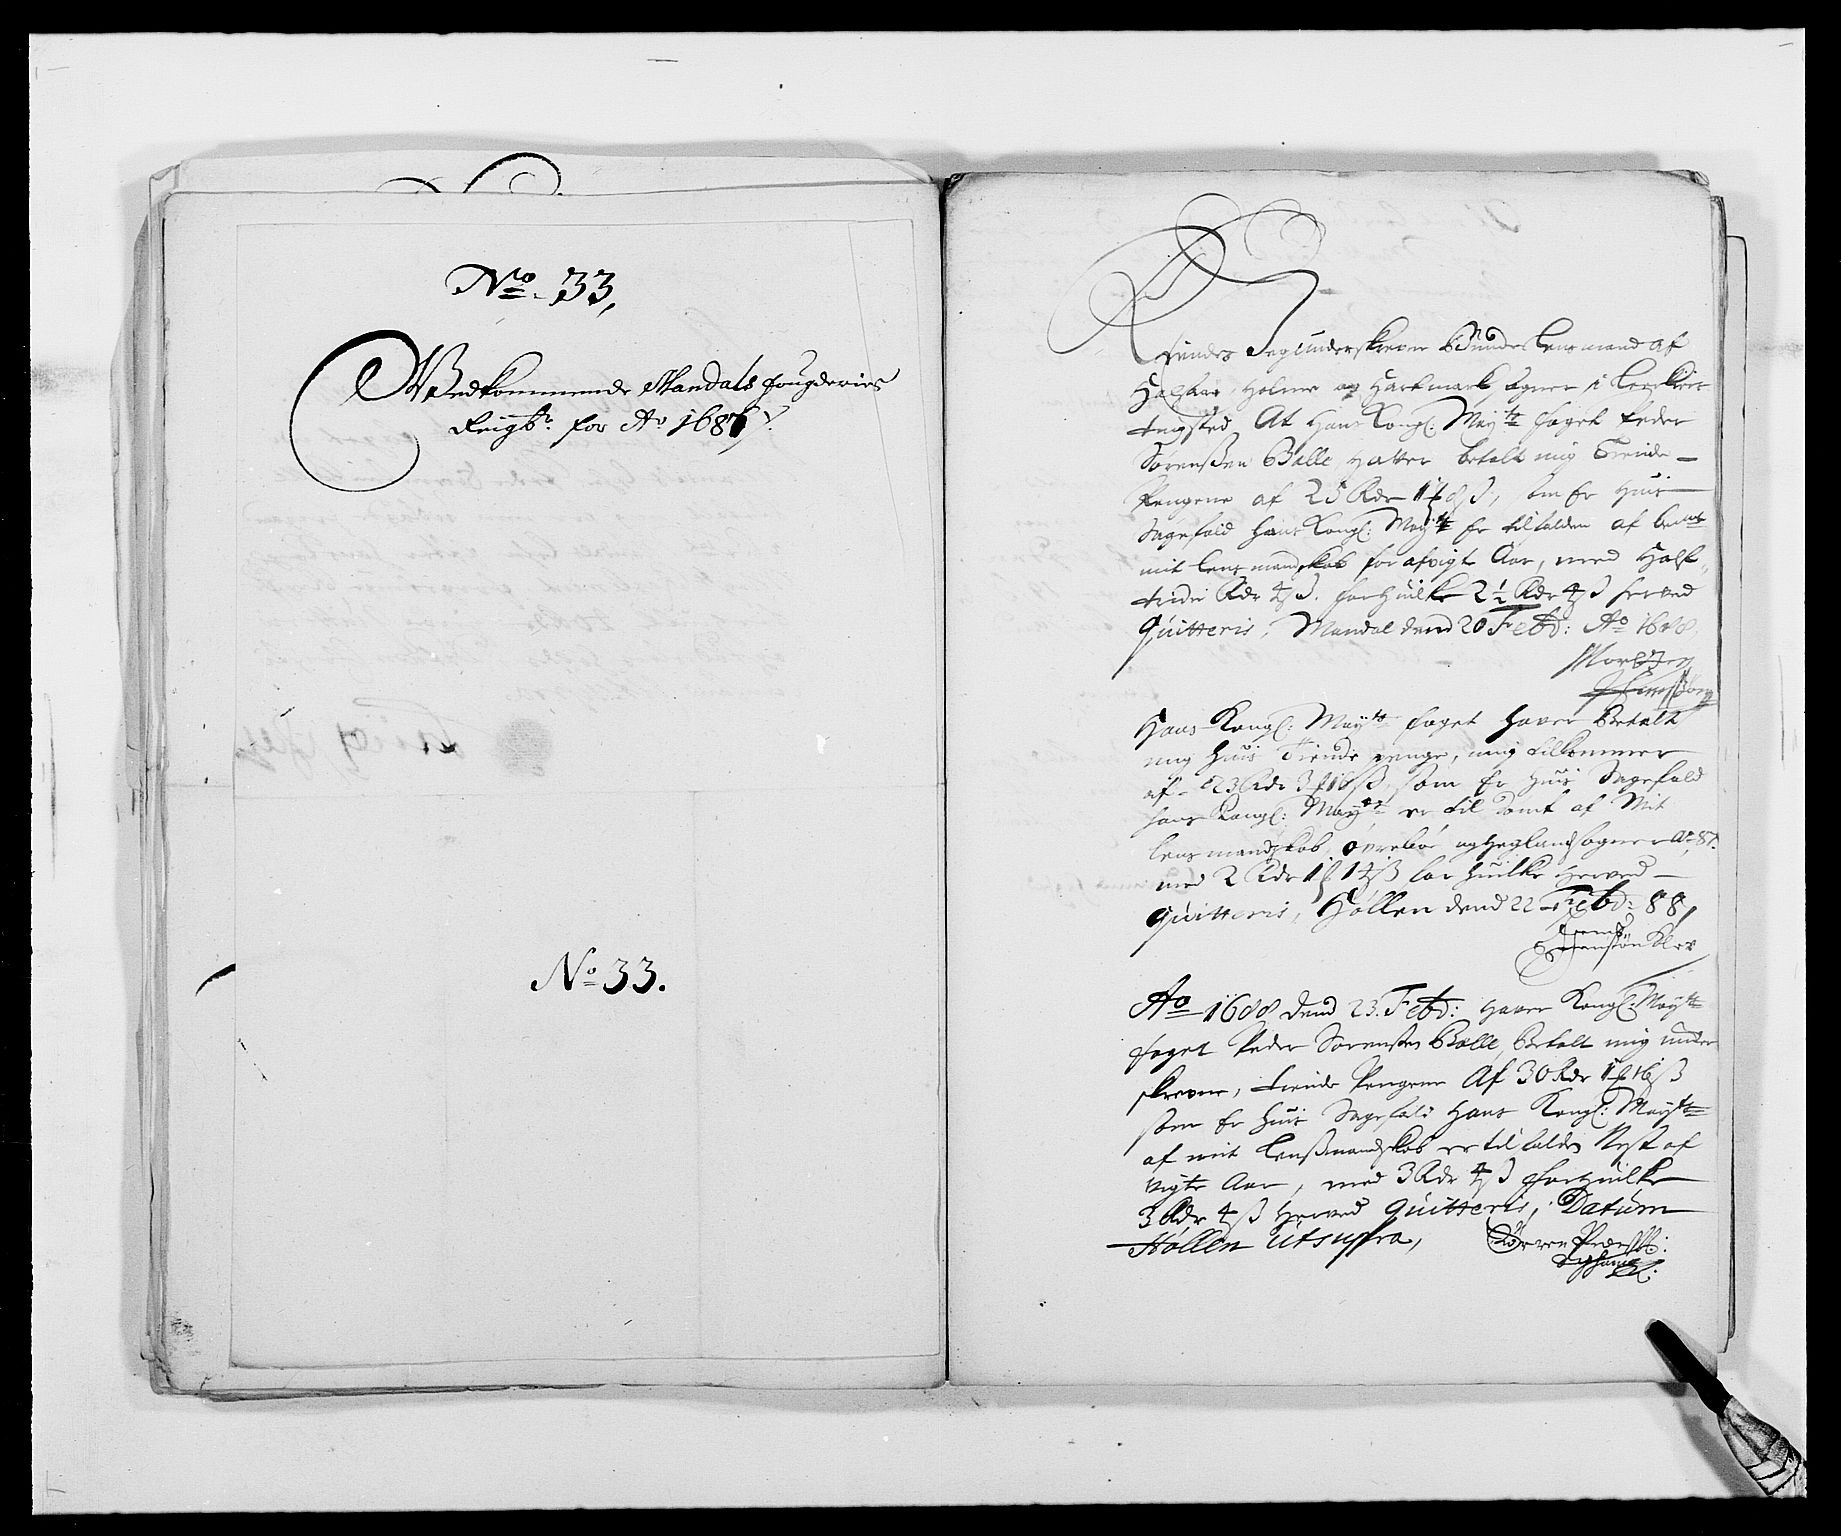 No 33,
Vedkommende Mandals fougderies
Reigb: for Ao 1687.
No 33.
Kiendes Jeg underskrefne Bunde lensmand af
Halsaa, Holme og Hartmark sogner i
tingsted At Hans Kongl: Maytz foget Peder
Sørenßen Balle, Hafver betalt mig Tiende
Pengene af 25 Rdr 1 8 ß, som Er Huis
Sagefald Hans Kongl: Maytz Er tilfalden af
mit lensmandskab for afvigte Aar, med Half
tridie Rdr 4 ß. for Huilke 2½ Rdr 4 ß herved
Quitteris, Mandal dend 20 Febr: Ao 1688.
Hans Kongl: Maytz foget haver Betalt
mig huis Tiende penge, mig tilkommer
af 23 Rdr 3 16 ß, som Er huis Sagefald
hans Kongl: Maytz er til dømt af Mit
lensmandskab, øvrebøe og Heglandsogner Ao 87.
med 2 Rdr 1 14 ß for huilke Herved
Quitteris, Høllen dend 22 Febr: 88,
Ao 1688 dend 23. Febr: Haver Kongl: Maytz
foget Peder Sørenßen Balle, Betalt mig under
skrefne, tiende Pengene Af 30 Rdr 1 16 ß
som Er Huis Sagefald Hans Kongl: Maytz
af mit lenßmandskab er tilfalden Nest af
vigte Aar, med 3 Rdr 4 ß for Huilke
3 Rdr 4 ß Herved Quitteris, Datum
Høllen utsupra,